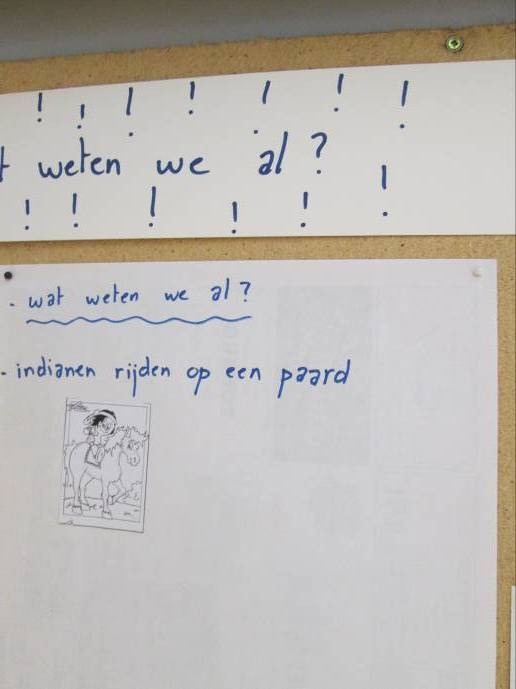 ! ! ! ! ! ! !
weten we al ?
! ! ! ! ! !
- wat weten we al ?
- indianen rijden op een paard